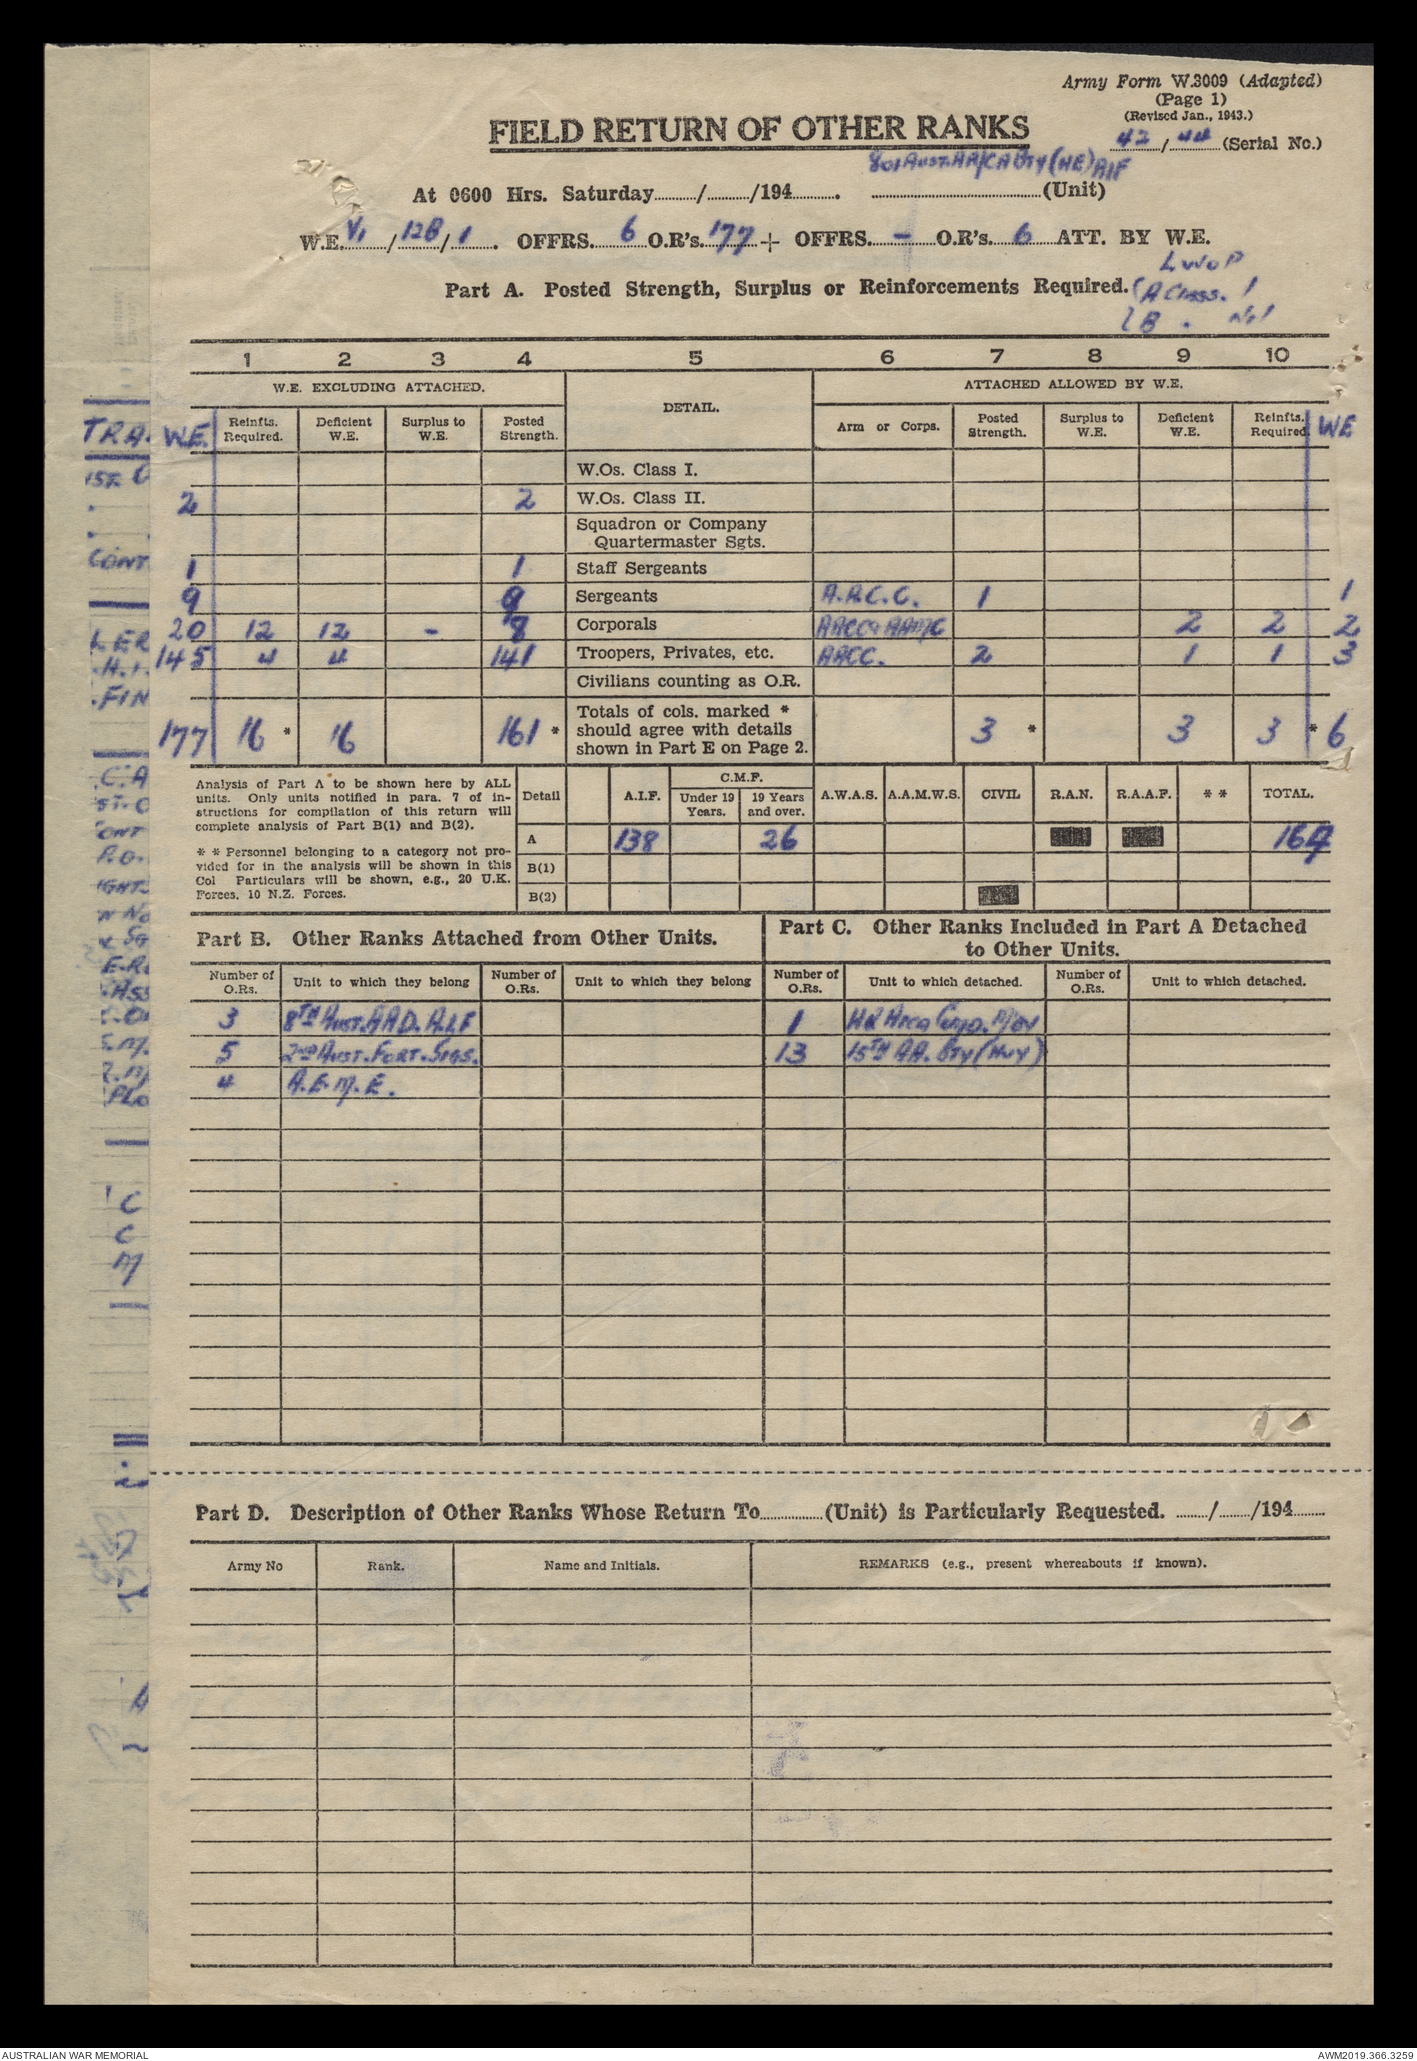 Army Form W.3009 (Adapted)
(Page 1)
(Revised Jan., 1943.)
FIELD RETURN OF OTHER RANKS
42/44 (Serial No.)
801 AUST. AA/CA BTY (HE) AIF
At 0600 Hrs. Saturday........../........../194.......... . (Unit)
W.E. VI/12B/1. OFFRS. 6 O.R's. 177 + OFFRS. - O.R's. 6 ATT. BY W.E.
LWOP
Part A. Posted Strength, Surplus or Reinforcements Required. (A CLASS. 1
(B . Nil
1 2 3 4 5 6 7 8 9 10
W.E. EXCLUDING ATTACHED. DETAIL. ATTACHED ALLOWED BY W.E.
W.E. Reinfts. Required. Deficient W.E. Surplus to W.E. Posted Strength. Arm or Corps. Posted Strength. Surplus to W.E. Deficient W.E. Reinfts. Required WE
W.Os. Class I.
2 2 W.Os. Class II.
Squadron or Company Quartermaster Sgts.
1 1 Staff Sergeants
9 9 Sergeants A.A.C.C. 1 1
20 12 12 - 8 Corporals AACC & AAMC 2 2 2
145 4 4 141 Troopers, Privates, etc. AACC. 2 1 1 3
Civilians counting as O.R.
177 16 * 16 161 * Totals of cols. marked * should agree with details shown in Part E on Page 2. 3 * 3 3 * 6
Analysis of Part A to be shown here by ALL
units. Only units notified in para. 7 of in-
structions for compilation of this return will
complete analysis of Part B(1) and B(2).
* * Personnel belonging to a category not pro-
vided for in the analysis will be shown in this
Col Particulars will be shown, e.g., 20 U.K.
Forces, 10 N.Z. Forces.
Detail A.I.F. C.M.F. Under 19 Years. 19 Years and over. A.W.A.S. A.A.M.W.S. CIVIL R.A.N. R.A.A.F. * * TOTAL.
A 138 26 164
B(1)
B(2)
Part B. Other Ranks Attached from Other Units.
Part C. Other Ranks Included in Part A Detached
to Other Units.
Number of O.Rs. Unit to which they belong Number of O.Rs. Unit to which they belong Number of O.Rs. Unit to which detached. Number of O.Rs. Unit to which detached.
3 8TH AUST. AAD. A.I.F 1 HQ AREA COMD. M/BY
5 2ND AUST. FORT. SIGS. 13 15TH AA. BTY (HVY)
4 A.E.M.E.
Part D. Description of Other Ranks Whose Return To..............(Unit) is Particularly Requested. ......./......./194.......
Army No Rank. Name and Initials. REMARKS (e.g., present whereabouts if known).
AUSTRALIAN WAR MEMORIAL
AWM2019.366.3259